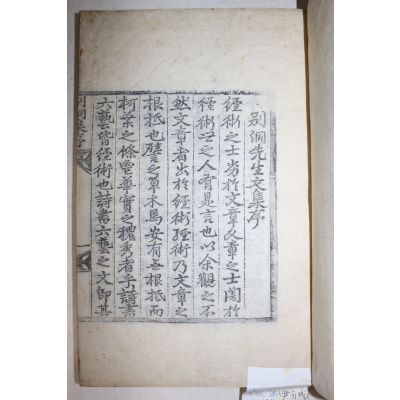 別洞先生文集序
經術之士劣於文章文章之士闇於
經術世之人有是言也以余觀之不
然文章者出於經術經術乃文章之
根柢也譬之草木焉安有無根柢而
柯葉之條鬯華實之穠秀者乎詩書
六藝皆經術也詩書六藝之文即其
別洞集序